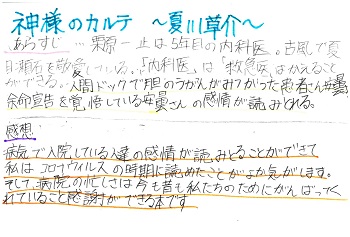 神様のカルテ ～夏川草介～
あらすじ…栗原一止は5年目の内科医。古風で夏
目漱石を敬愛している。「内科医」は「救急医」はかえること
ができる。人間ドックで胆のうがんがみつかった患者さん安曇
余命宣告を覚悟している安曇さんの感情が読みとれる。
感想
病気で入院している人達の感情が読みとることができて
私はコロナウィルスの時期に読めたことがよか気がします。
そして、病院の忙しさは今も昔も私たちのためにがんばってく
れていること感謝ができる本です